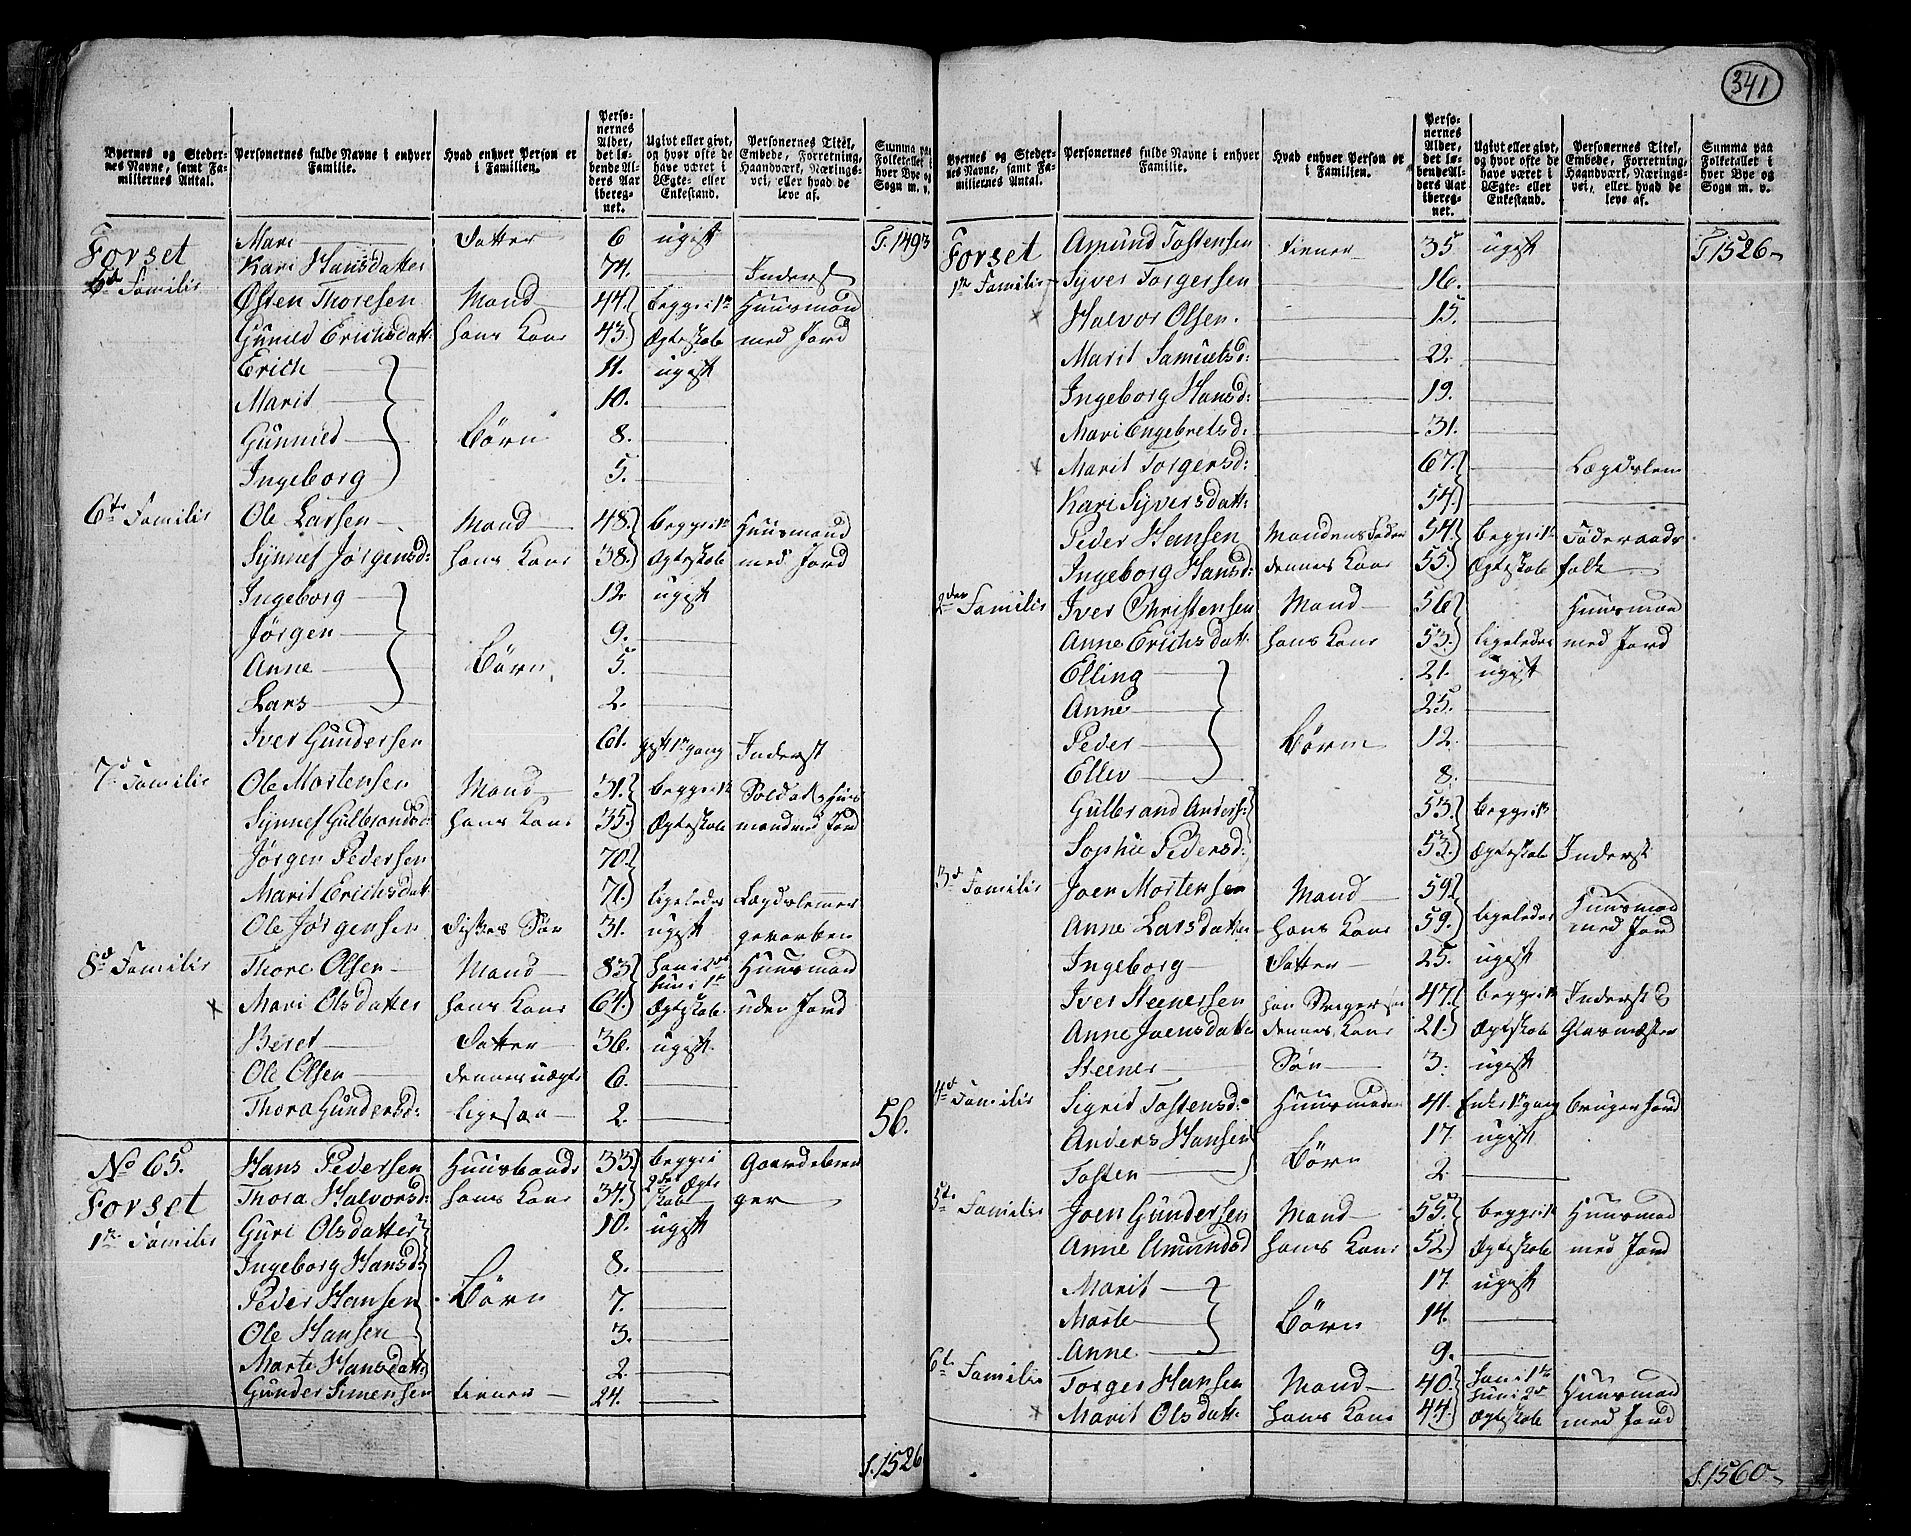 341
Byernes og Stedernes Navne, samt Familiernes Antal. | Personernes fulde Navne i enhver Familie. | Hvad enhver Person er i Familien. | Personernes Alder, det løbende Alders Aar iberegnet. | Ugivt eller givt, og hvor ofte de have været i Ægte- eller Enkestand. | Personernes Titel, Embede, Forretning, Haandværk, Næringsvei, eller hvad de leve af. | Summa paa Folketallet i hver Bye og Sogn m. v.
Forset | Mari | Datter | 6 | ugift | | T. 1493
Kari Hansdatter | 74. | — | Inderst
5te Familie | Østen Thoresen | Mand | 44. | begge i 1te | Huusmand
Guneld Erichsdatt: | hans Kone | 43. | Ægteskab | med Jord
Erich | 11. | ugift
Marit | 10. | —
Gunnild | Børn | 8. | —
Ingeborg | 5. | —
6te Familie | Ole Larsen | Mand | 48. | begge i 1te | Huusmand
Synnef Jørgensd: | hans Kone | 38. | Ægteskab | med Jord
Ingeborg | 12 | ugift
Jørgen | 9. | —
Anne | Børn | 5. | —
Lars | 2. | —
Iver Gundersen | 61. | gift 1te gang | Inderst
7de Familie | Ole Mortensen | Mand | 31. | begge i 1te | Soldat & Huus
Synnef Gulbrandsd: | hans Kone | 35. | Ægteskab | mand med Jord
Jørgen Pedersen | 70.
Marit Erichsdatt: | 71. | ligeledes | Lægdslemmer
Ole Jørgensen | Disses Søn | 31. | ugift | gevorben
8de Familie | Thore Olsen | Mand | 83 | han i 2det hun i 1te | Huusmand
× Mari Olsdatter | hans Kone | 64. | Ægteskab | uden Jord
Beret | Datter | 36. | ugift
Ole Olsen | dennes uægte | 6. | —
Thora Gundersd: | ligesaa | 2. | — | | 56.
No 65. | Hans Pedersen | Huusbonde | 33. | begge i | Gaardebrue
Forset | Thora Halvorsd: | hans Kone | 34. | 2det Ægteskab | ger
1te Familie | Guri Olsdatter | 10. | ugift
Ingeborg Hansd: | 8. | —
Peder Hansen | Børn | 7. | —
Ole Hansen | 3. | —
Marte Hansdatt: | 2. | —
Gunder Simensen | tiener | 24. | —
S. 1526
Byernes og Stedernes Navne, samt Familiernes Antal. | Personernes fulde Navne i enhver Familie. | Hvad enhver Person er i Familien. | Personernes Alder, det løbende Alders Aar iberegnet. | Ugivt eller givt, og hvor ofte de have været i Ægte- eller Enkestand. | Personernes Titel, Embede, Forretning, Haandværk, Næringsvei, eller hvad de leve af. | Summa paa Folketallet i hver Bye og Sogn m. v.
Forset | Amund Tostensen | tiener | 35 | ugift | | T. 1526
1te Familie | Syver Torgersen | — | 16. | —
× Halvor Olsen. | — | 15. | —
Marit Samuelsd: | — | 22. | —
Ingeborg Hansd: | — | 19. | —
Mari Engebretsd: | — | 31. | —
× Marit Torgersd: | 67. | — | Lægdslem
Kari Syversdatt: | 54. | — | —
Peder Hansen | Mandens Fader | 54. | begge i 1te | Føderaads
Ingeborg Hansd: | dennes Kone | 55. | Ægteskab | folk
2den Familie | Iver Christensen | Mand | 56. | | Huusmand
Anne Erichsdatt: | hans Kone | 53. | ligeledes | med Jord
Elling | 21. | ugift
Anne | 25. | —
Peder | Børn | 12. | —
Ellev | 8. | —
Gulbrand Anders: | 53. | begge i 1te
Sophie Pedersd: | 53. | Ægteskab | Inderst
3de Familie | Joen Mortensen | Mand | 59. | | Huusmand
Anne Larsdatter | hans Kone | 59. | ligeledes | med Jord
Ingeborg | Datter | 25. | ugift
Iver Steenersen | han Svigersøn | 47. | begge i 1te | Inderst &
Anne Joensdatter | dennes Kone | 21. | Ægteskab | Glasmæster
Steener | Søn | 3. | ugift
4de Familie | Sigrid Tostensd: | Huusmoder | 41. | Enke 1te gang | bruger Jord
Anders Hansen | 17. | ugift
Tosten | Børn | 2. | —
5te Familie | Joen Gundersen | Mand | 55. | begge i 1te | Huusmand
Anne Amundsd | hans Kone | 52. | Ægteskab | med Jord
Marit | 17. | ugift
Marte | Børn | 14. | —
Anne | 9. | —
6te Familie | Torger Hansen | Mand | 40. | han i 1te hun i 2det | Huusmand
× Marit Olsdatt: | hans Kone | 44. | Ægteskab | med Jord
S. 1560